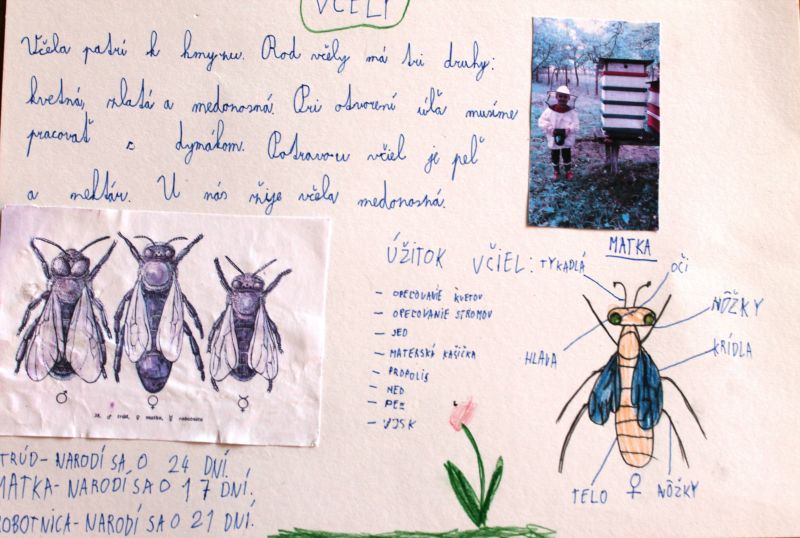 VČELY
Včela patrí k hmyzu. Rod včely má tri druhy:
kvetná, zlatá a medonosná. Pri otvorení úľa musíme
pracovať s dymákom. Potravou včiel je peľ
a nektár. U nás žije včela medonosná.
ÚŽITOK VČIEL:
- OPEĽOVANIE KVETOV
- OPEĽOVANIE STROMOV
- JED
- MATERSKÁ KAŠIČKA
- PROPOLIS
- MED
- PEĽ
- VOSK
MATKA
TYKADLÁ
OČI
NÔŽKY
HLAVA
KRÍDLA
TELO ♀ NÔŽKY
♂ ♀ ☿
♂ trúd, ♀ matka, ☿ robotnica
TRÚD- NARODÍ SA O 24 DNÍ.
MATKA- NARODÍ SA O 17 DNÍ.
ROBOTNICA- NARODÍ SA O 21 DNÍ.